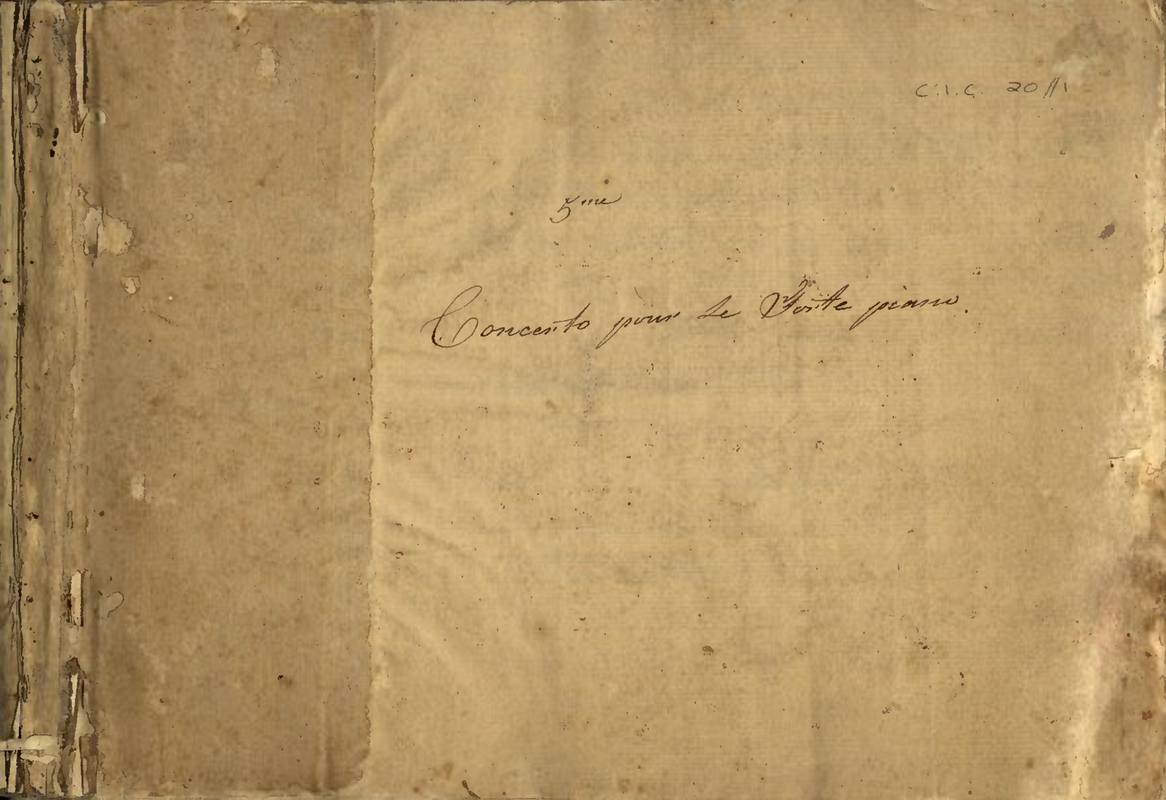 C.I.C. 20//1
5me
Concerto pour Le Forte piano.